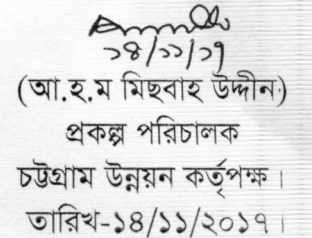 ১৪/১১/১৭
(আ.হ.ম মিছবাহ উদ্দীন)
প্রকল্প পরিচালক
চট্টগ্রাম উন্নয়ন কর্তৃপক্ষ।
তারিখ-১৪/১১/২০১৭।